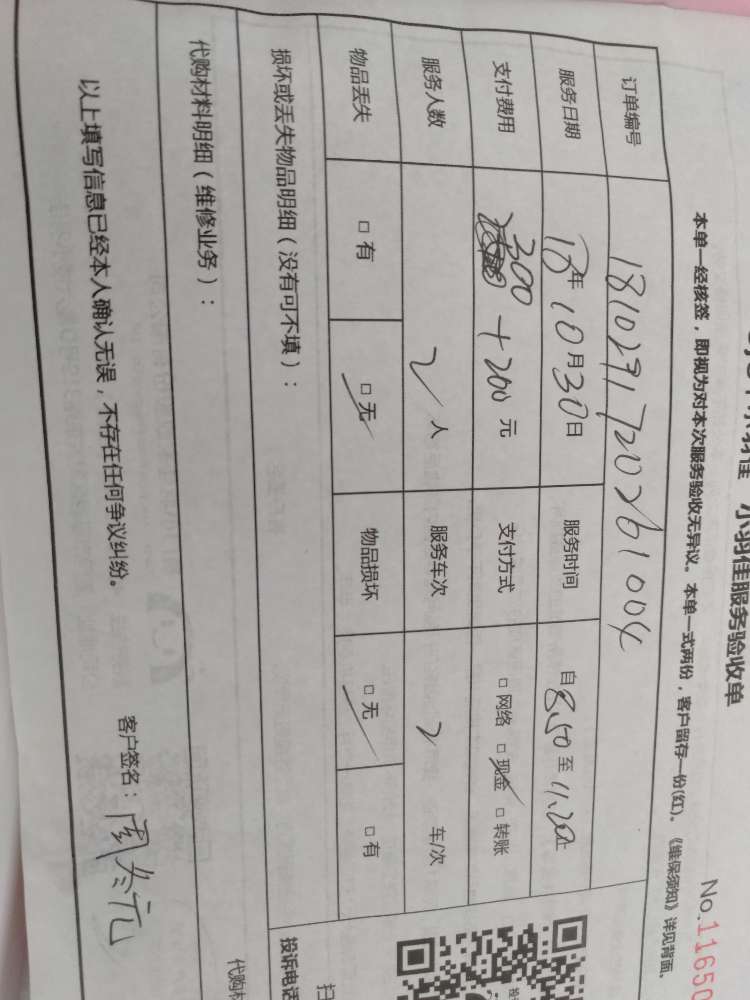 小羽佳服务验收单
No.11650
本单一经核签，即视为对本次服务验收无异议。本单一式两份，客户留存一份(红)。《维保须知》详见背面。
订单编号 1810291720261004
服务日期 18年10月30日 服务时间 自8.50至11.20止
支付费用 300+200元 支付方式 □网络 □现金 □转账
服务人数 2人 服务车次 2 车/次
物品丢失 □有 □无 物品损坏 □无 □有
损坏或丢失物品明细（没有可不填）：
代购材料明细（维修业务）：
投诉电话
代购材
以上填写信息已经本人确认无误，不存在任何争议纠纷。
客户签名：周冬元